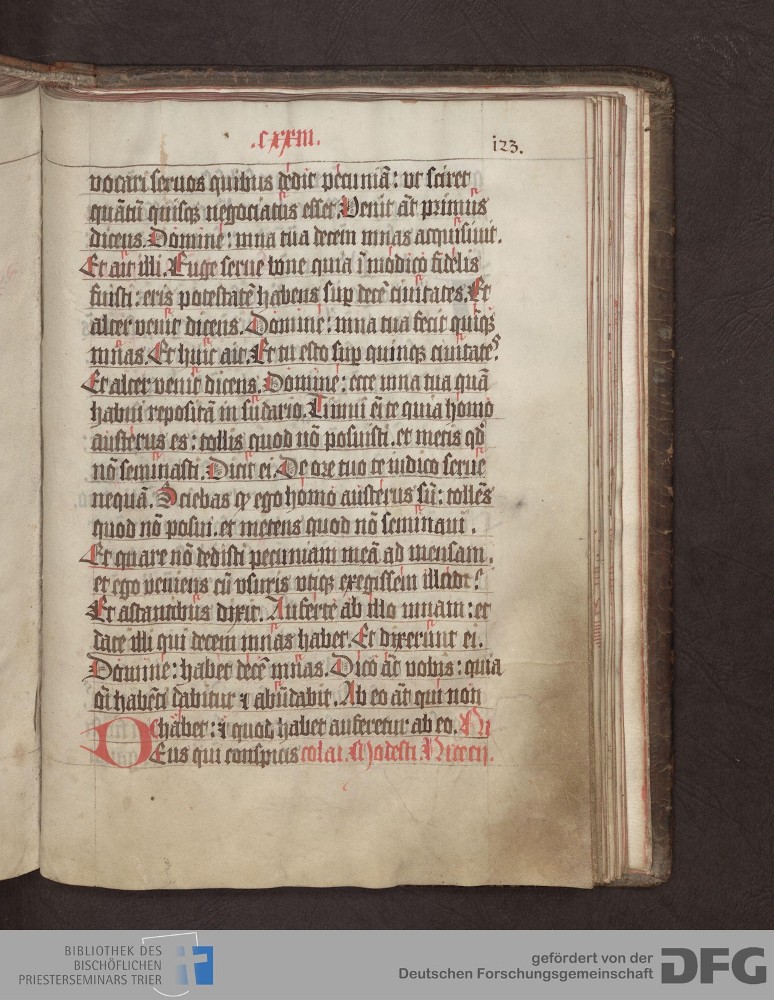 .cxxııı.
123.
vocari seruos quibus dedit pecuniā: vt sciret
quātū quisq; negociatus esset. Venit āt primus
dicens. Domine: mna tua decem mnas acquisiuit.
Et ait illi. Euge serue bone quia ī modico fidelis
fuisti: eris potestatē habens sup decē ciuitates. Et
alter venit dicens. Domine: mna tua fecit quīq;
mnas. Et huic ait. Et tu esto sup quinq; ciuitates.
Et alter venit dicens. Domine: ecce mna tua quā
habui repositā in sudario. Timui ei te quia homo
austerus es: tollis quod nō posuisti. et metis qd
nō seminasti. Dicit ei. De ore tuo te iudico serue
nequā. Sciebas q ego homo austerus sū: tollēs
quod nō posui. et metens quod nō seminaui.
Et quare nō dedisti pecuniam meā ad mensam.
et ego veniens cū vsuris vtiq; exegissem illud?
Et astantibus dixit. Auferte ab illo mnam: et
date illi qui decem mnas habet. Et dixerunt ei.
Domine: habet decē mnas. Dico āt vobis: quia
oī habēti dabitur ⁊ abūdabit. Ab eo āt qui non
habet: ⁊ quod habet auferetur ab eo. Ni
Deus qui conspicis colai. Modesti.
BIBLIOTHEK DES
BISCHÖFLICHEN
PRIESTERSEMINARS TRIER
gefördert von der
Deutschen Forschungsgemeinschaft DFG